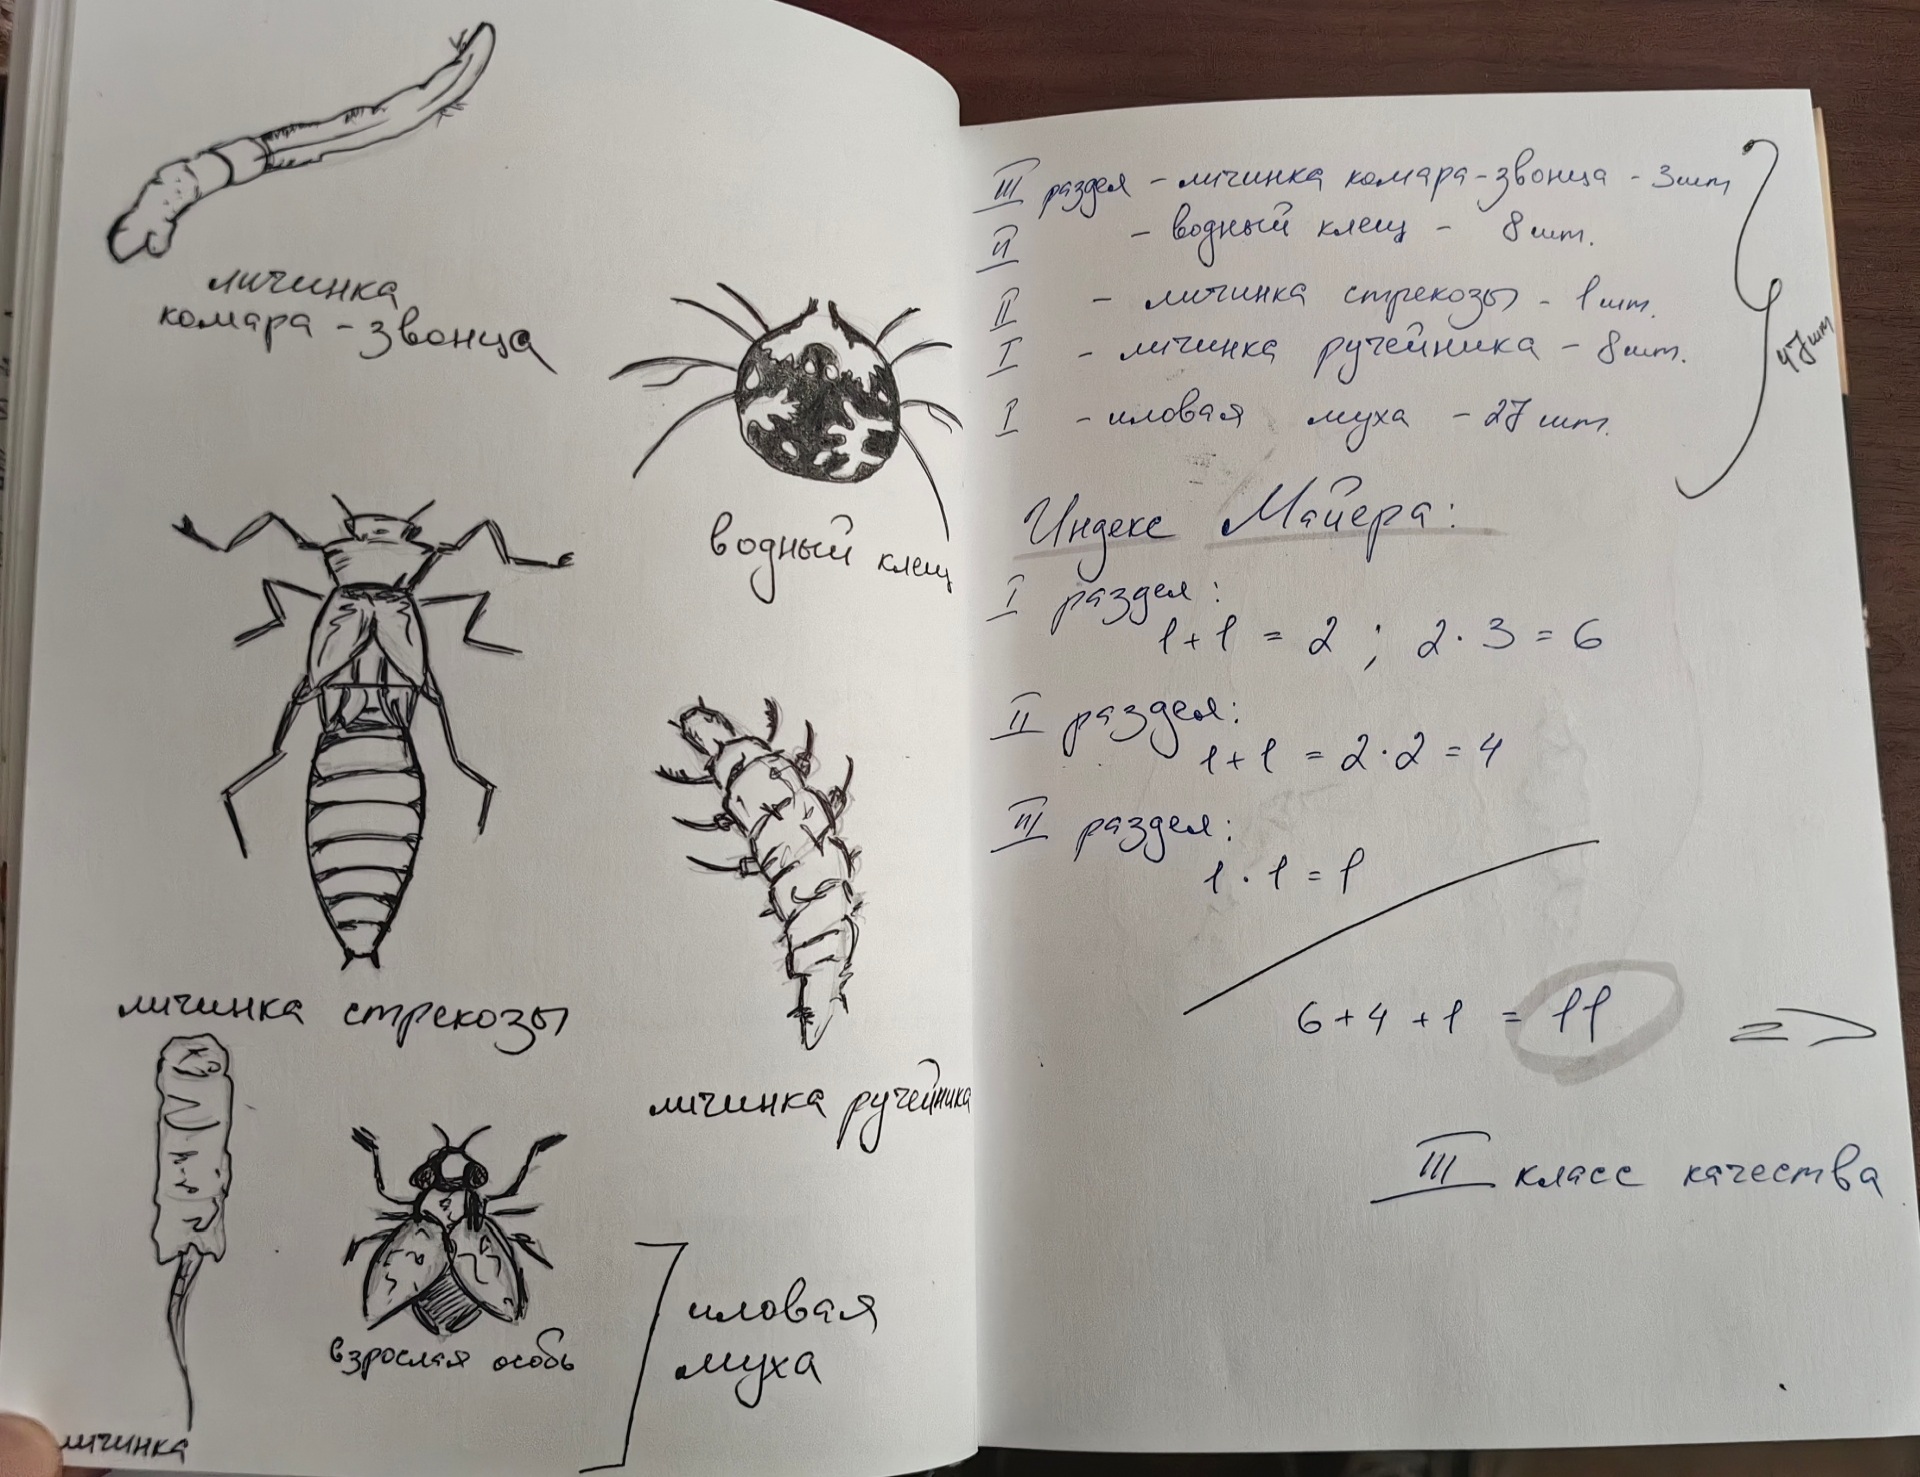 личинка
комара-звонца
водный клещ
личинка стрекозы
личинка ручейника
взрослая особь
иловая
муха
личинка
III раздел - личинка комара-звонца - 3шт
II - водный клещ - 8 шт.
II - личинка стрекозы - 1 шт.
I - личинка ручейника - 8 шт.
I - иловая муха - 27 шт.
47шт
Индекс Майера:
I раздел:
1+1 = 2 ; 2·3 = 6
II раздел:
1+1 = 2·2 = 4
III раздел:
1·1 = 1
6+4+1 = 11 =>
III класс качества